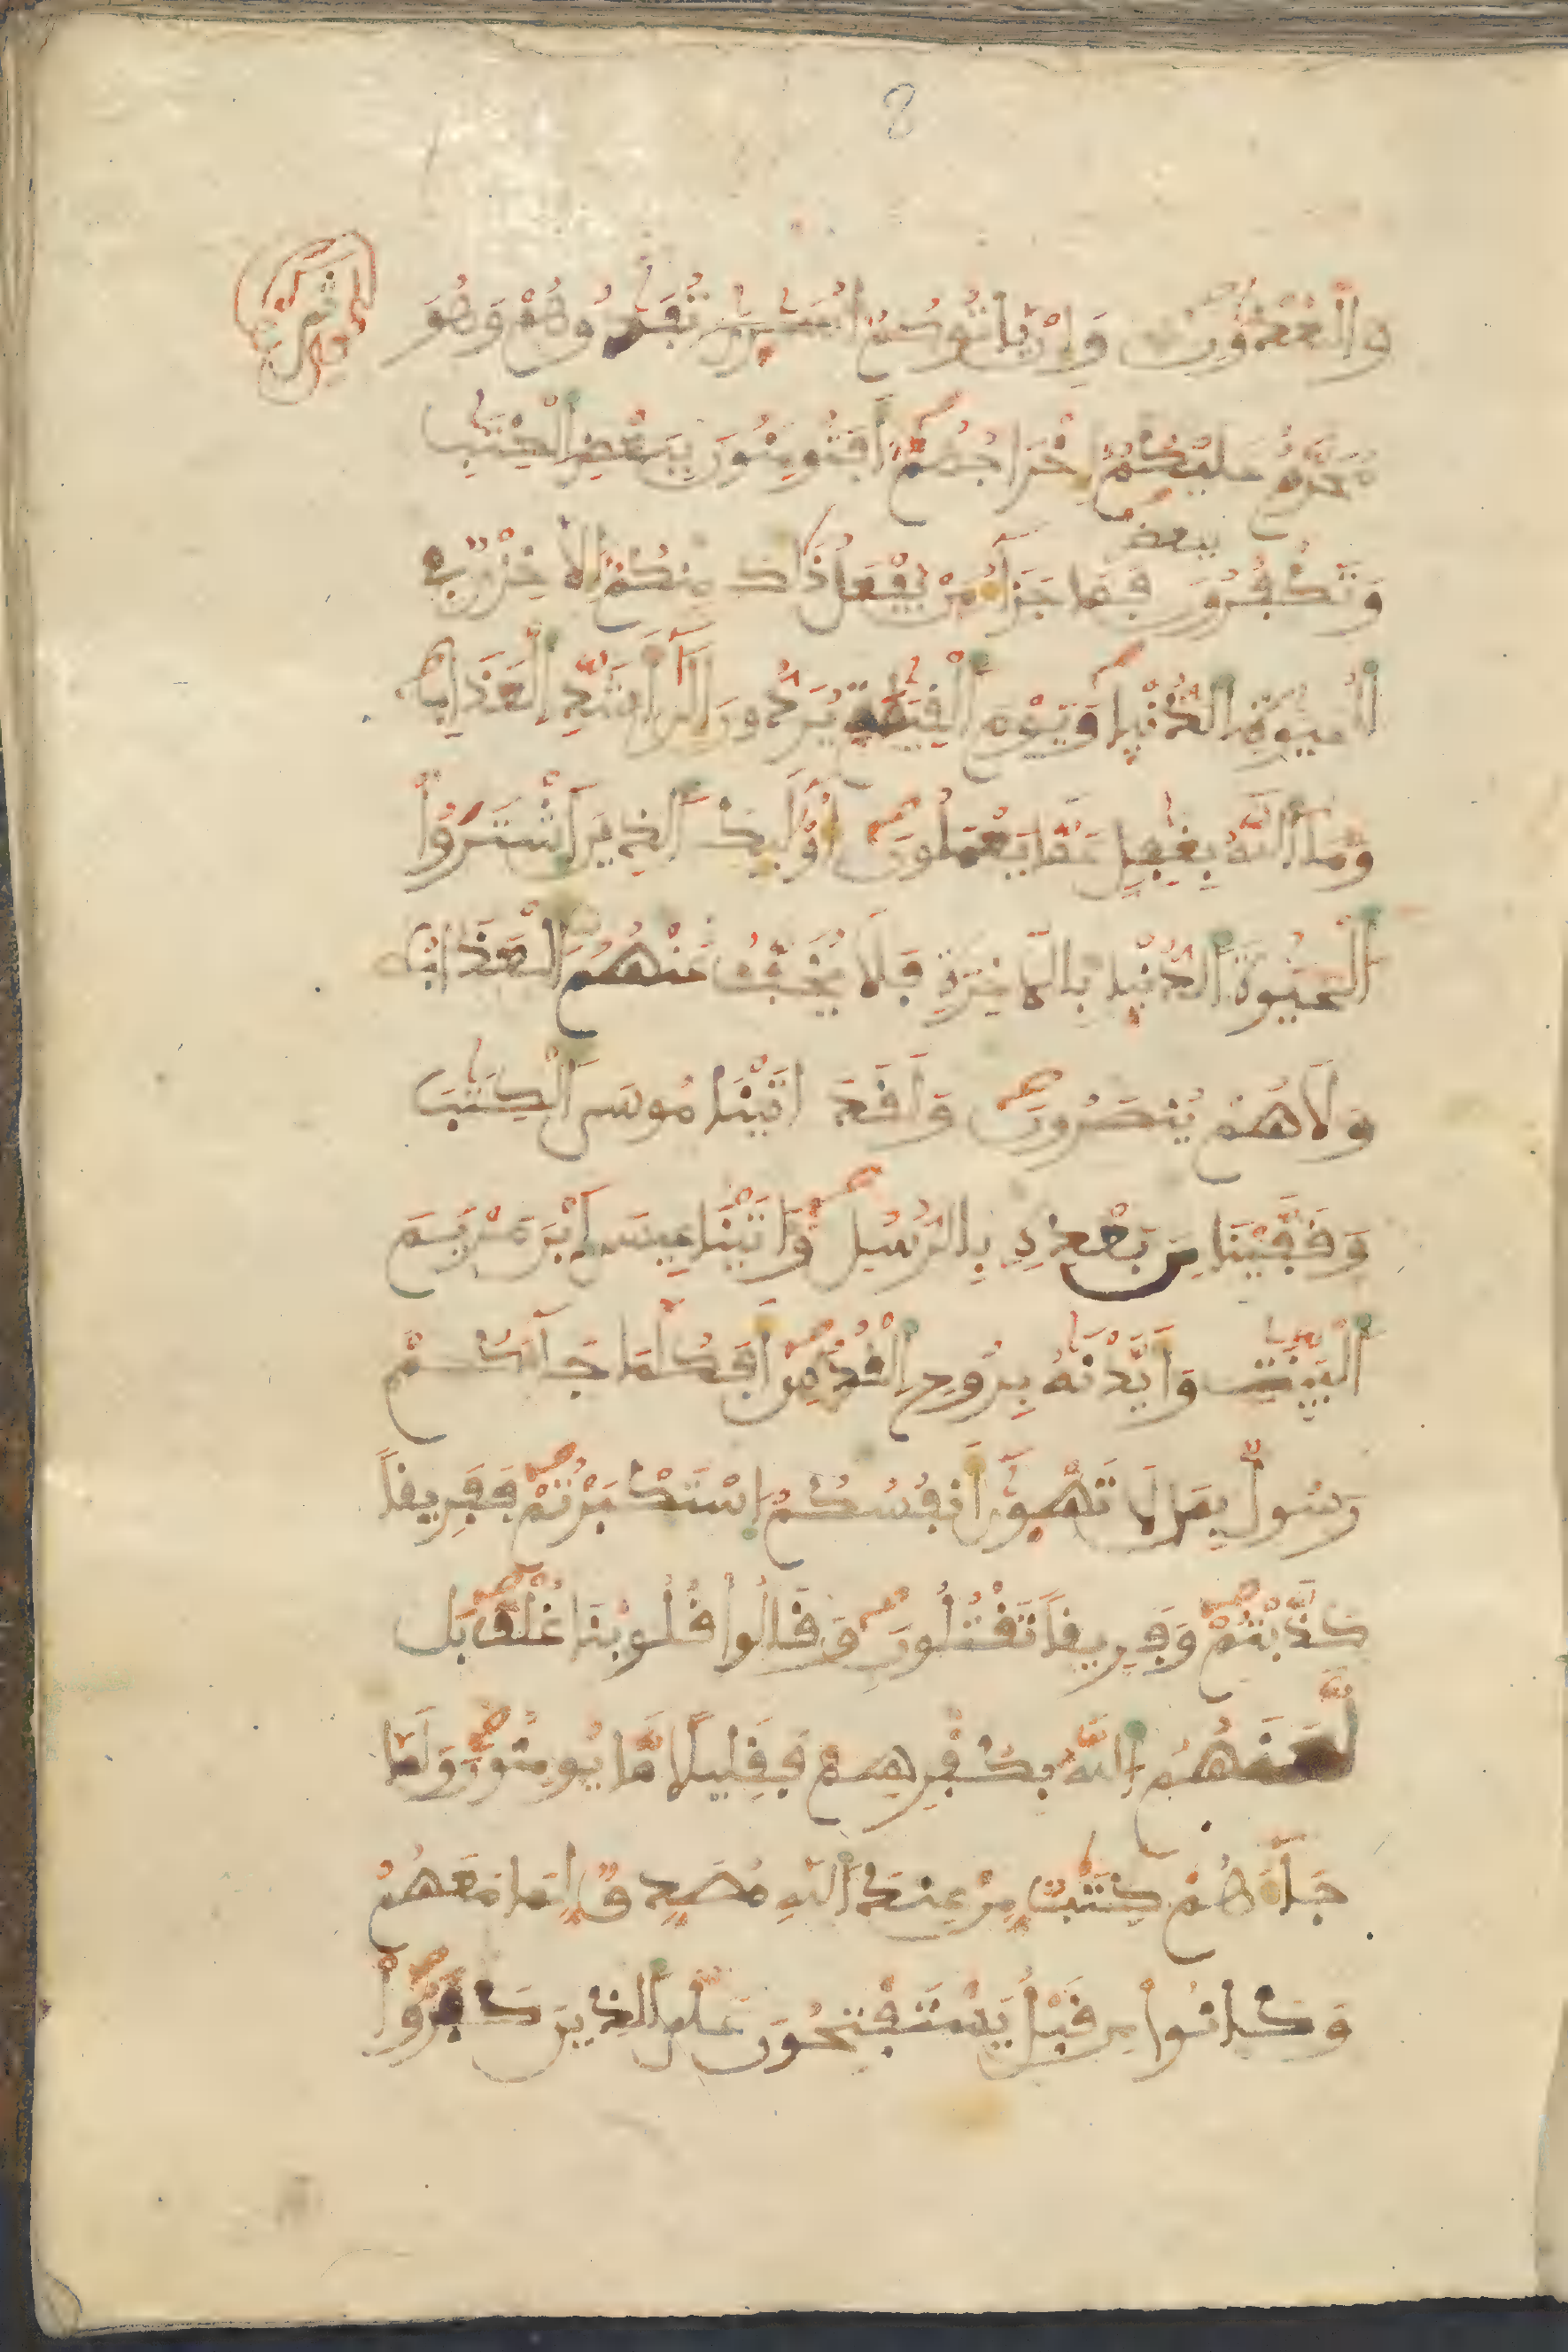 8
والعدون وان ياتوكم اسرى تفدوهم وهو
ثمن
محرم عليكم اخراجهم افتومنون ببعض الكتب
ببعض
وتكفرون فما جزاء من يفعل ذلك منكم الا خزي في
الحيوة الدنيا ويوم القيمة يردون الى اشد العذاب
وما الله بغفل عما يعملون اولئك الذين اشتروا
الحيوة الدنيا بالاخرة فلا يخفف عنهم العذاب
ولا هم ينصرون ولقد اتينا موسى الكتب
وقفينا من بعده بالرسل واتينا عيسى ابن مريم
البينت وايدنه بروح القدس افكلما جاءكم
رسول بما لا تهوى انفسكم استكبرتم ففريقا
كذبتم وفريقا تقتلون وقالوا قلوبنا غلف بل
لعنهم الله بكفرهم فقليلا ما يومنون ولما
جاءهم كتب من عند الله مصدق لما معهم
وكانوا من قبل يستفتحون على الذين كفروا